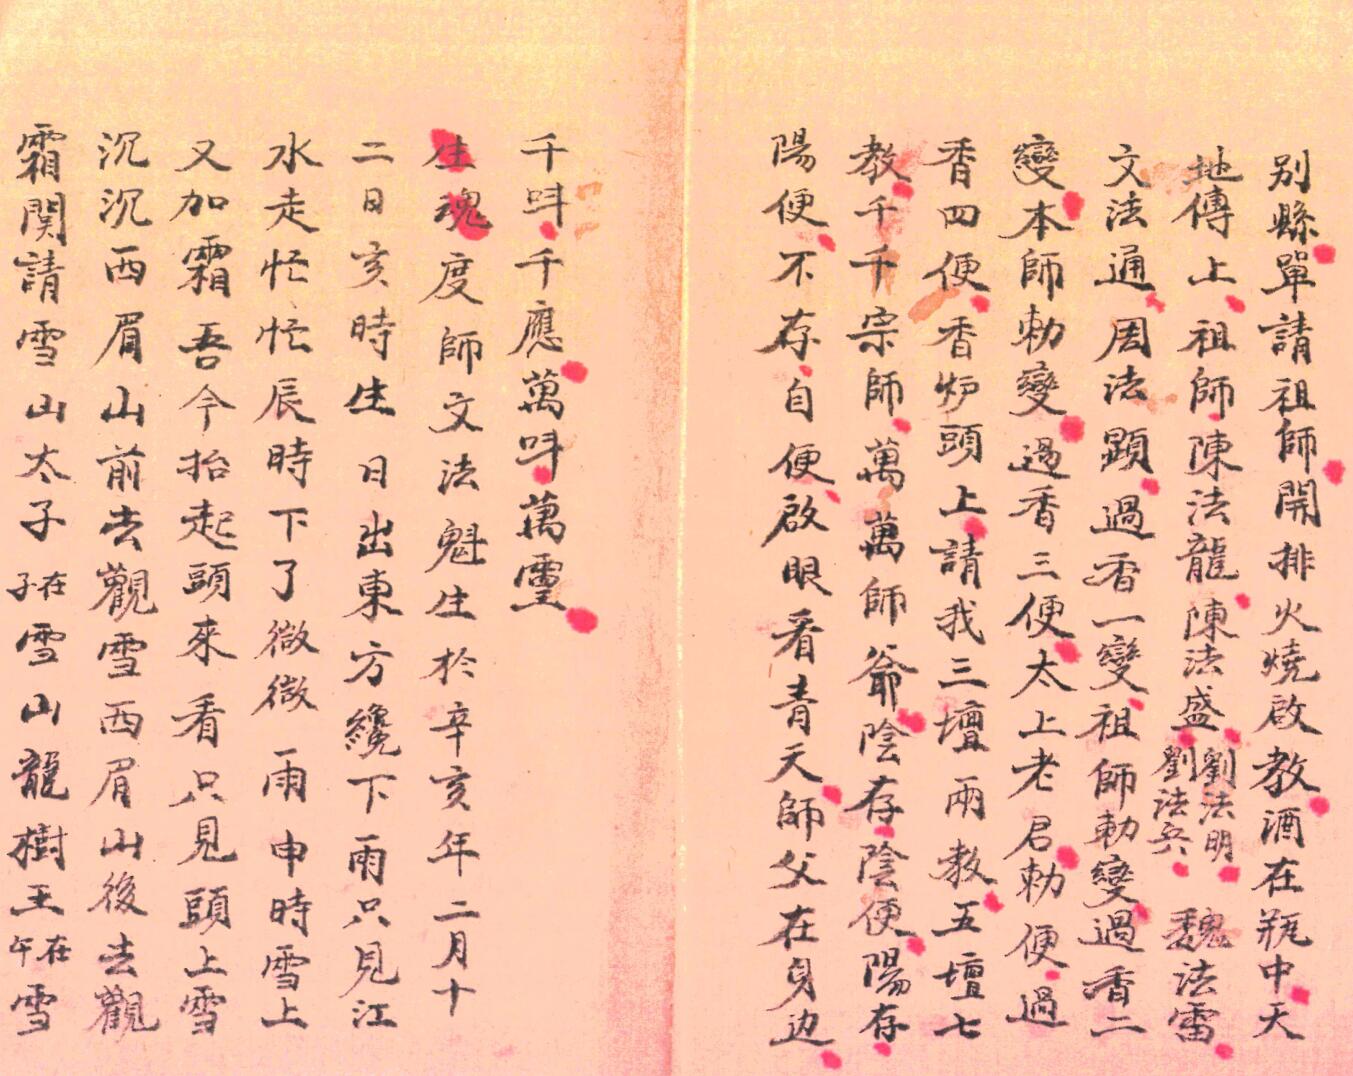 別縣單請祖師開排火燒啟教酒在瓶中天
地傳上祖師陳法龍陳法盛劉法明劉法兵魏法雷
文法通周法顕過香一變祖師勅變過香二
變本師勅變過香三便太上老君勅便過
香四便香炉頭上請我三壇兩教五壇七
教千千宗師萬萬師爺陰存陰便陽存
陽便不存自便啟眼看青天師父在身边
千呌千應萬呌萬靈
生魂度師文法魁生於辛亥年二月十
二日亥時生日出東方纔下雨只見江
水走忙忙辰時下了微微雨申時雪上
又加霜吾今抬起頭來看只見頭上雪
沉沉西眉山前去觀雪西眉山後去觀
霜関請雪山太子在子雪山龍樹王在午雪